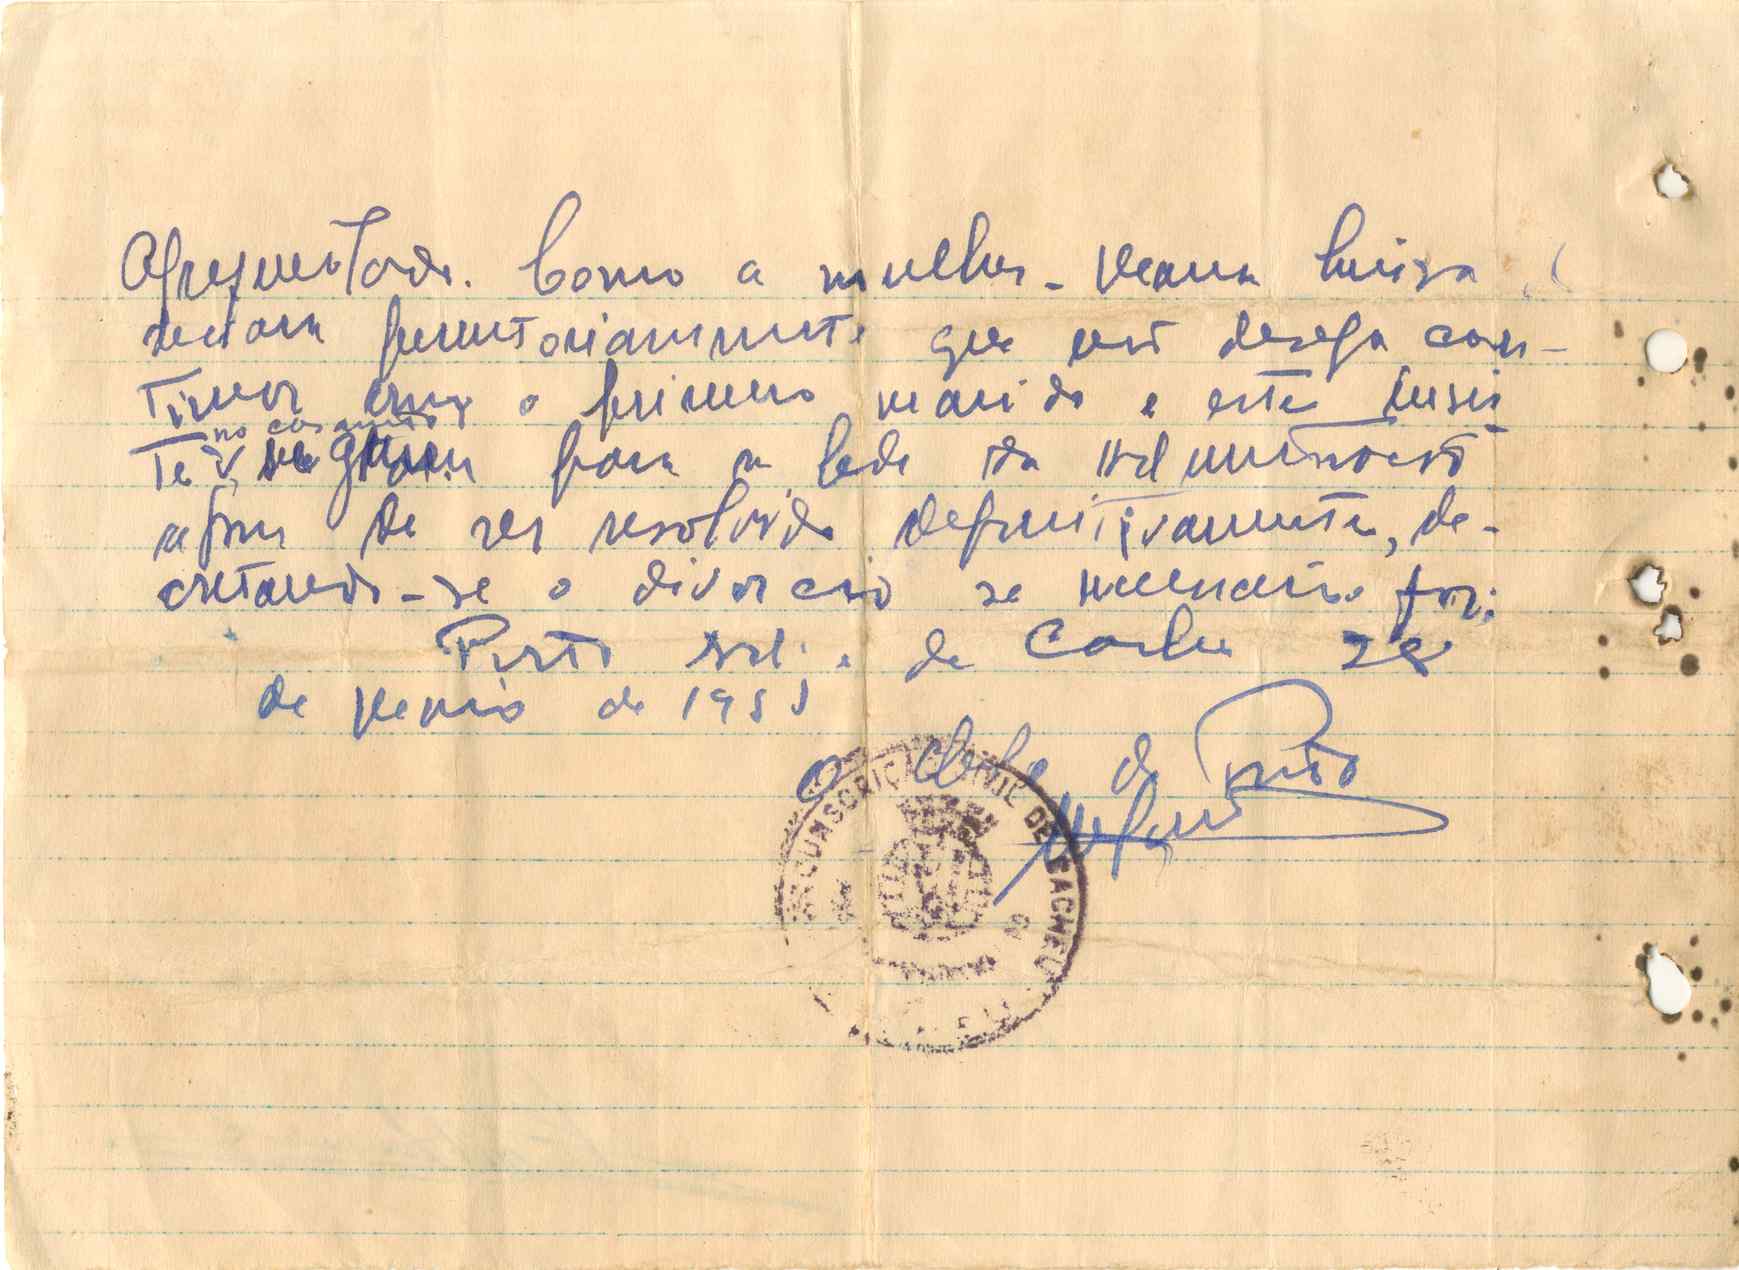 Apresentado. Como a mulher - Maria Luiza
declara perentoriamente que não deseja con-
tinuar com o primeiro marido e este insis
te no casamento, seguem para a sede da Administração
afim de ser resolvido definitivamente, de-
cretando-se o divorcio se necessário for.
Posto Ad. de Cacheu 28
de Maio de 1955
O Chefe de Posto
CIRCUNSCRIÇÃO CIVIL DE CACHEU